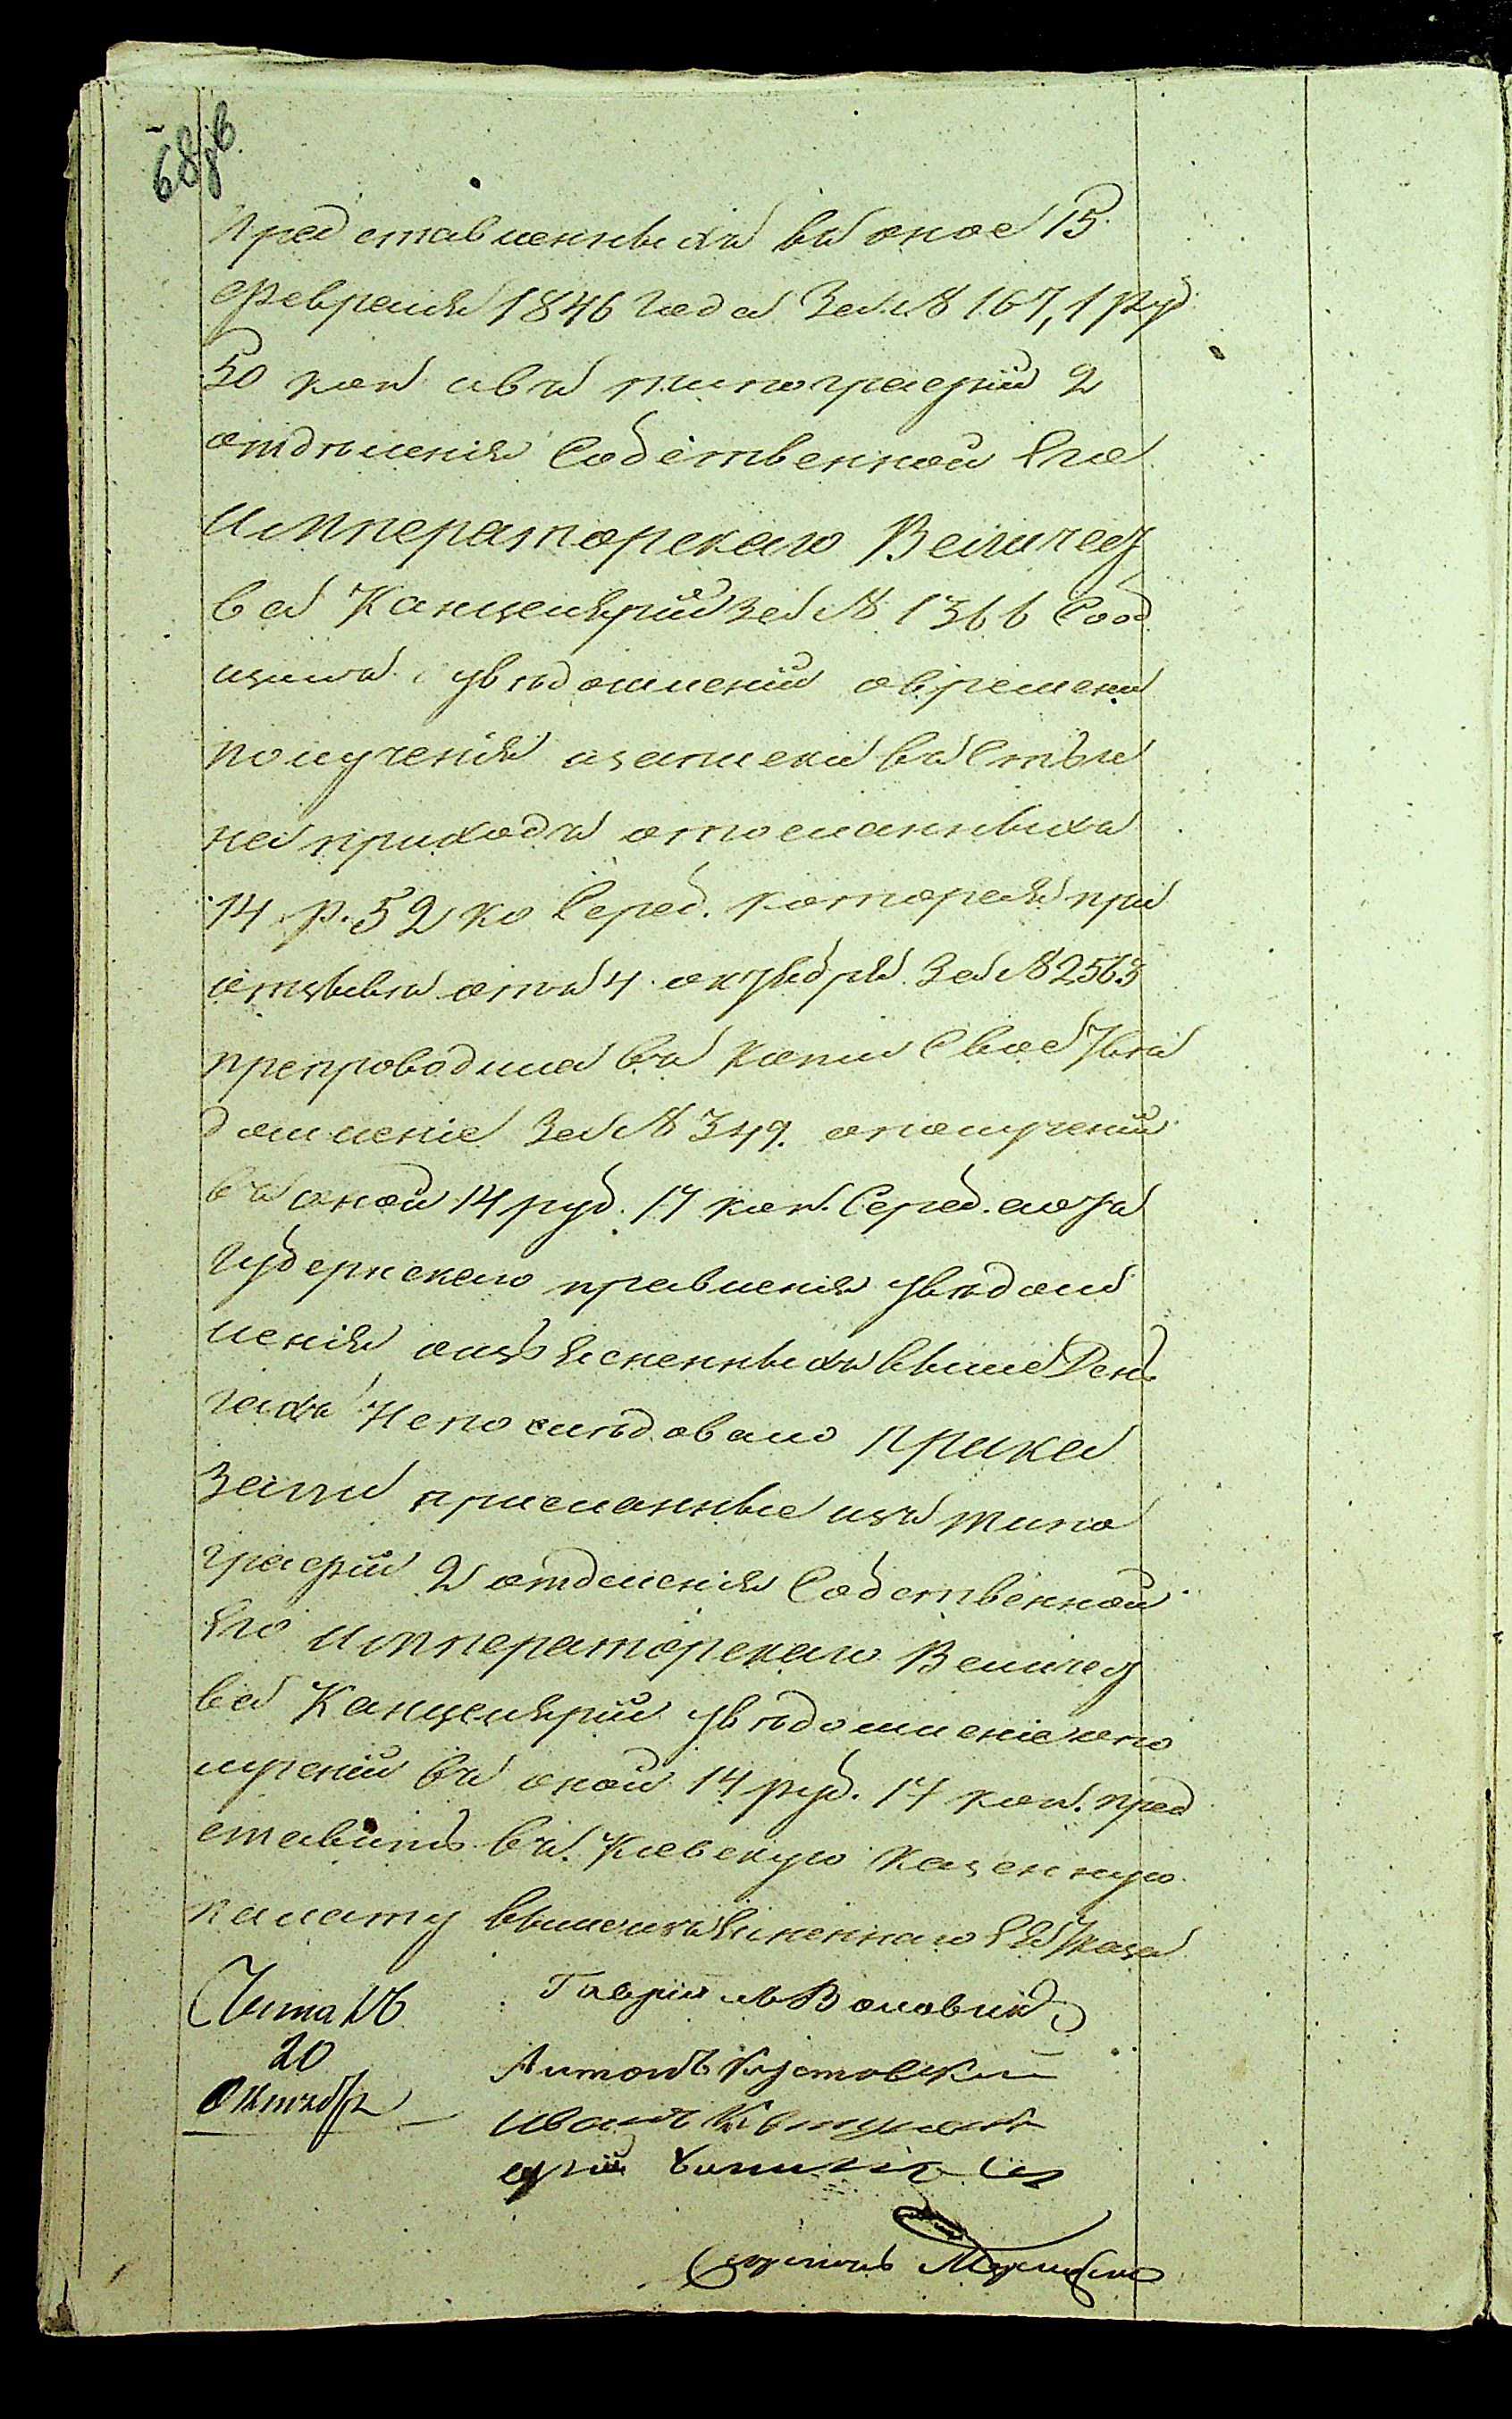 68 об
представленныхъ въ оное 15
февраля 1846 года за № 167, 1 руб
50 коп ивъ типографіи 2
отдѣленія Собственной Его
Императорскаго Величест
ва Канцеляріи за № 1366 Сооб
щила увѣдомленій овремени
полученія изаписки въ Статьи
на приходъ отосланныхъ
14 р. 52 ко Сереб. которая при
отзывѣ отъ 4 октября за № 2563
препроводила въ копіи Свое Увѣ
домленіе за № 349. ополученіи
въ оной 14 руб. 17 коп. Сереб. аотъ
Губернскаго правленія увѣдом
ленія оизъясненныхъ выше День
гахъ Непослѣдовало прика
зали присланные изъ типо
графіи 2 отделенія Собственной
Его Императорскаго Величест
ва Канцеляріи увѣдомленіеопо
лученіи въ оной 14 руб. 17 коп. пред
ставить въ Киевскую казенную
палату вышеизъясненнаго Ея Указа
Читалъ
20
Октября
Гавріилъ
Антонъ
Иванъ